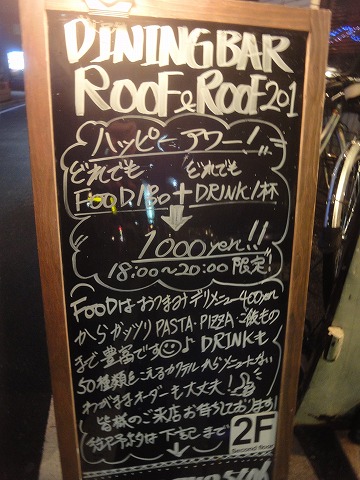 DINING BAR
ROOF & ROOF 201
ハッピーアワー!!
どれでも どれでも
FOOD 1品 + DRINK 1杯
↓
1000yen!!
18:00~20:00 限定!
FOODはおつまみデリメニュー400yen
からガッツリPASTA・PIZZA・ご飯もの
まで豊富です♪ DRINKも
50種類をこえるカクテルからメニューにない
わがままオーダーも大丈夫!
皆様のご来店お待ちしております!
下もしくまで
2F
Second floor